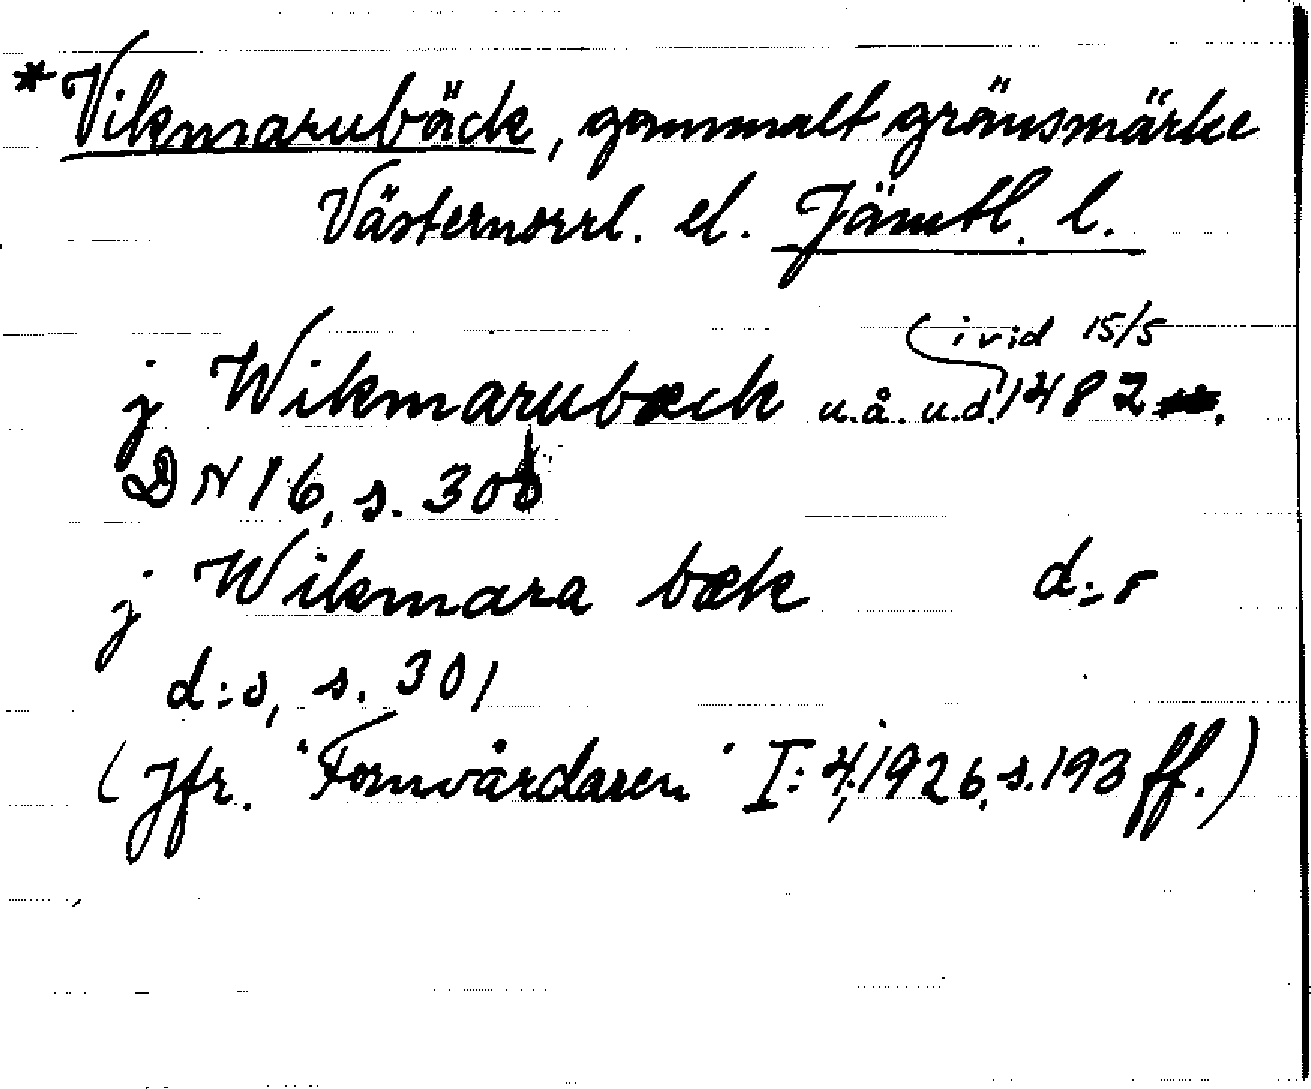 *Vikmarubäck, gammalt gränsmärke
Västernorrl. el. Jämtl. l.
j Wikmarubæck u.å. u.d. i vid 15/5 1482.
DN 16, s. 300
j Wikmara bæk d:o
d:o, s. 301
(Jfr. "Fornvårdaren" I:4, 1926, s. 193 ff.)